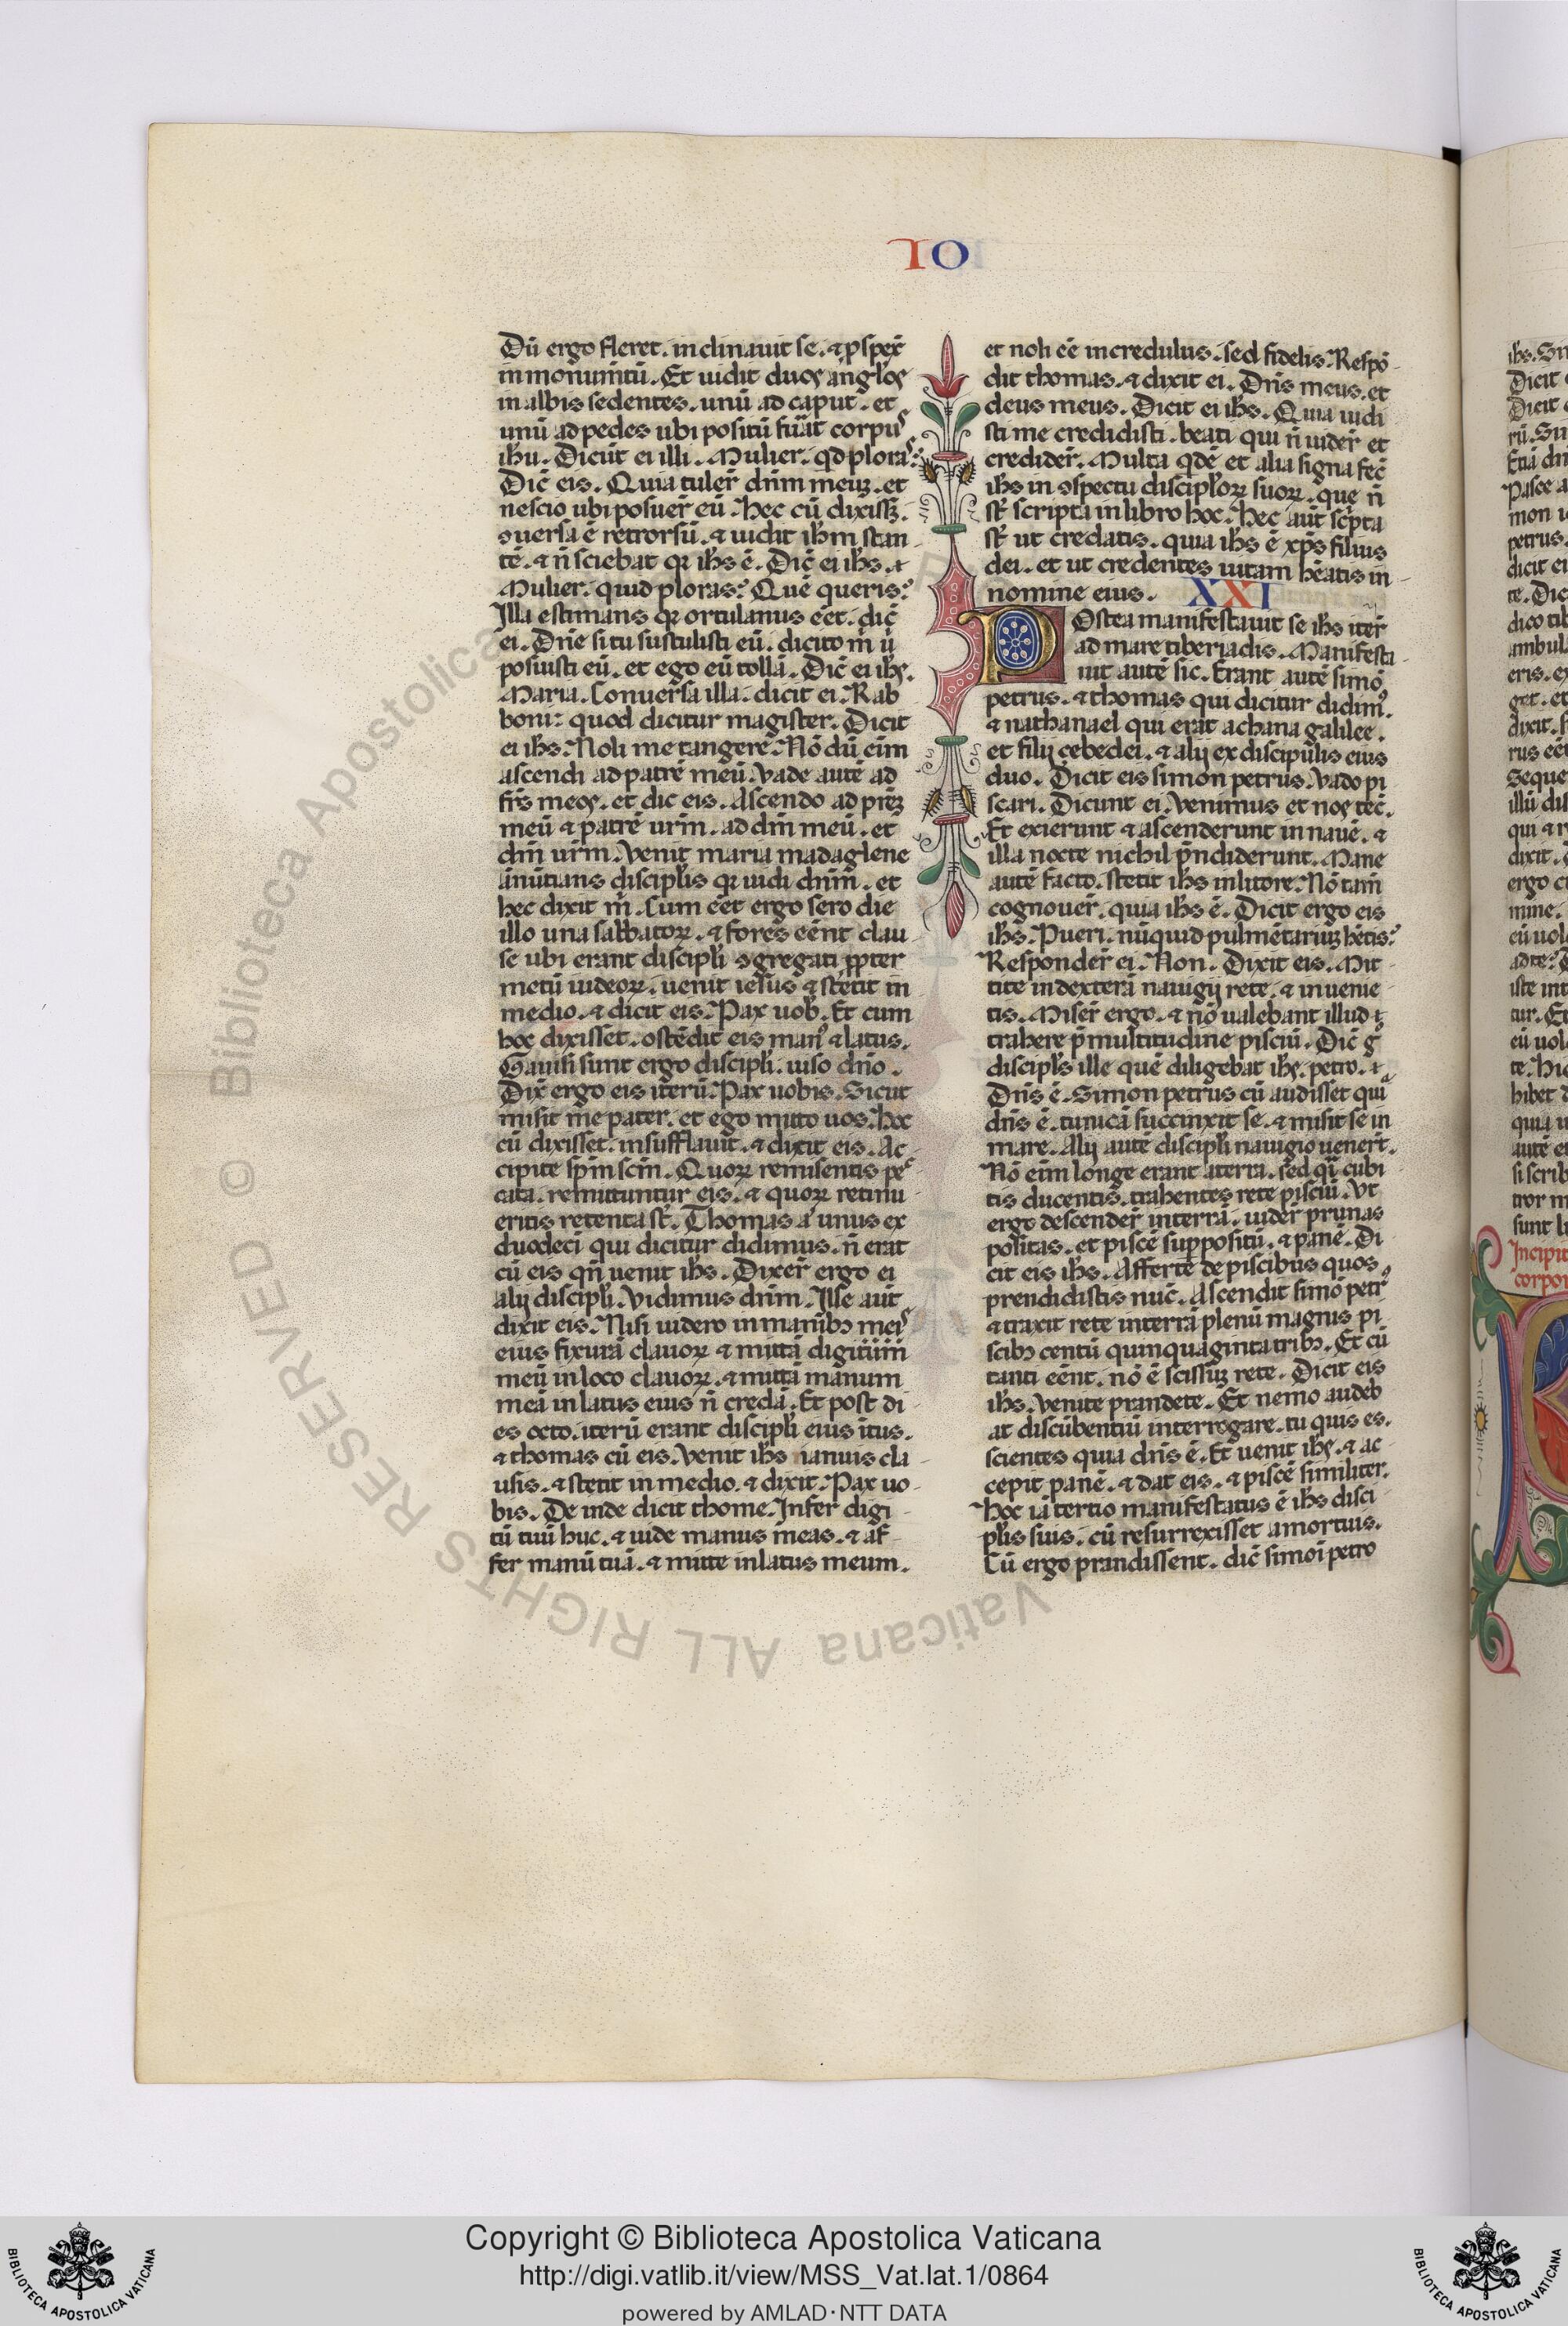 IO
Dū ergo fleret. inclinauit se. ⁊ ꝓspex̄
in monumt̄ū. Et uidit duos angl̄os
in albis sedentes. unū ad caput. et
unū ad pedes ubi positū fūāt corpuˢ
ihu. Dicūt ei illi. Mulier. qd ploraˢ?
Dic̄ eis. Quia tuler̄ dn̄m meuꝫ. et
nescio ubi posuer̄ eū. hec cū dixissꝫ.
ꝯuersa ē retrorsū. ⁊ uidit ihm stan-
tē. ⁊ n̄ sciebat qꝛ ihs ē. Dic̄ ei ihs. ⁊
Mulier. quid ploras? Quē queris?
Illa estimans qꝛ ortulanus eēt. dic̄
ei. Dn̄e si tu sustulisti eū. dicito m̄ u̇
posuisti eū. et ego eū tollā. Dic̄ ei ihs.
Maria. Conuersa illa. dicit ei. Rab
boni: quod dicitur magister. Dicit
ei ihs. Noli me tangere. Nō dū eīm
ascendi ad patrē meū. Vade autē ad
fr̄s meos. et dic eis. Ascendo ad pr̄eꝫ
meū ⁊ patrē ur̄m. ad dm̄ meū. et
dm̄ ur̄m. Venit maria madaglene
ānūtians discipl̄is qꝛ uidi dn̄m. et
hec dixit m̄. Cum eēt ergo sero die
illo una sabbatoꝝ. ⁊ fores eēnt clau-
se ubi erant discipl̄i ꝯgregati ꝓpter
metū iudeoꝝ. uenit iesus ⁊ stetit in
medio. ⁊ dicit eis. Pax uob̄. Et cum
hoc dixisset. ostēdit eis manꝰ ⁊ latus.
Gauisi sunt ergo discipl̄i. uiso dn̄o.
Dix̄ ergo eis iterū. Pax uobis. Sicut
misit me pater. et ego mitto uos. hoc
cū dixisset. insufflauit. ⁊ dixit eis. Ac-
cipite spm̄ scm̄. Quoꝝ remisentis pec̄
cata. remittuntur eis. ⁊ quoꝝ retinu-
eritis retenta st̄. Thomas a᷒ unus ex
duodeci qui dicitur didimus. n̄ erat
cū eis qn̄ uenit ihs. Dixer̄ ergo ei
alij discipl̄i. Vidimus dn̄m. Ille aūt
dixit eis. Nisi uidero in manibꝫ meiˢ
eius fixurā clauoꝝ ⁊ mittā digitūm
meū in loco clauoꝝ. ⁊ mittā manum
meā in latus eius n̄ credā. Et post di-
es octo. iterū erant discipl̄i eius ītus.
⁊ thomas cū eis. Venit ihs ianuis cla-
usis. ⁊ stetit in medio. ⁊ dixit. Pax uo-
bis. De inde dicit thome. Infer digi-
tū tuū huc. ⁊ uide manus meas. ⁊ af-
fer manū tuā. ⁊ mitte in latus meum.
et noli eē incredulus. sed fidelis. Respō-
dit thomas. ⁊ dixit ei. Dn̄s meus. et
deus meus. Dicit ei ihs. Quia uidi
sti me credidisti. beati qui n̄ uider̄ et
credider̄. Multa qdē et alia signa fec̄
ihs in ꝯspectu discipl̄oꝝ suoꝝ. que n̄
st̄ scripta in libro hoc. hec aūt sc̄pta
st̄ ut credatis. quia ihs ē xp̄s filius
dei. et ut credentes uitam hēatis in-
nomine eius. XXI
Postea manifestauit se ihs iter̄
ad mare tiberiadis. Manifesta-
uit autē sic. Erant autē simō
petrus. ⁊ thomas qui dicitur didimꝰ.
⁊ nathanael qui erat achana galilee.
et filij çebedei. ⁊ alij ex discipulis eius
duo. Dicit eis simon petrus. Vado pi
scari. Dicunt ei. Venimus et nos tec̄.
Et exierunt ⁊ ascenderunt in nauē. ⁊
illa nocte nichil p̄ndiderunt. Mane
autē facto. stetit ihs in litore. Nō tam̄
cognouer̄. quia ihs ē. Dicit ergo eis
ihs. Pueri. nūquid pulmētariuꝫ hētis?
Responder̄ ei. Non. Dixit eis. Mit-
tite in dexterā nauigij rete. ⁊ inuenie-
tis. Miser̄ ergo. ⁊ nō ualebant illud ⁊
trahere p̄ multitudine pisciū. Dic̄ gͦ
discipl̄s ille quē diligebat ihs. petro. ⁊
Dn̄s ē. Simon petrus cū audisset quiᵃ
dn̄s ē. tunicā succinxit se. ⁊ misit se in
mare. Alij autē discipl̄i nauigio uener̄t.
Nō eīm longe erant aterra. sed qͣi cubi-
tis ducentis. trahentes rete pisciū. Vt
ergo descender̄ interrā. uider̄ prunas
positas. et piscē suppositū. ⁊ panē. Di-
cit eis ihs. Afferte de piscibus quos
prendidistis nuc̄. Ascendit simō petrꝰ
⁊ traxit rete interrā plenū magnis pi
scibꝫ centū quinquaginta tribꝫ. Et cū
tanti eēnt. nō ē scissuꝫ rete. Dicit eis
ihs. Venite prandete. Et nemo audeb
at discūbentiū interrogare. tu quis es.
scientes quia dn̄s ē. Et uenit ihs. ⁊ ac-
cepit panē. ⁊ dat eis. ⁊ piscē similiter.
hoc iā tertio manifestatus ē ihs disci-
pl̄is suis. cū resurrexisset amortuis.
Cū ergo prandissent. dic̄ simoī petro
Biblioteca Apostolica Vaticana ALL RIGHTS RESERVED ©
Copyright © Biblioteca Apostolica Vaticana
http://digi.vatlib.it/view/MSS_Vat.lat.1/0864
powered by AMLAD·NTT DATA
BIBLIOTECA APOSTOLICA VATICANA
BIBLIOTECA APOSTOLICA VATICANA